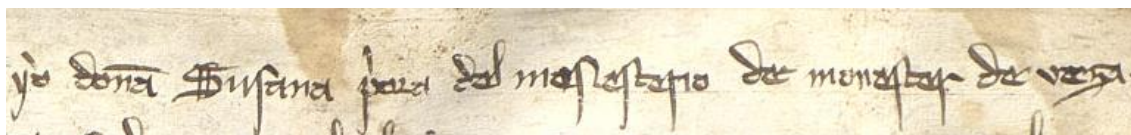 yo donã Susana p̃ora del meslesterio de monester de vega